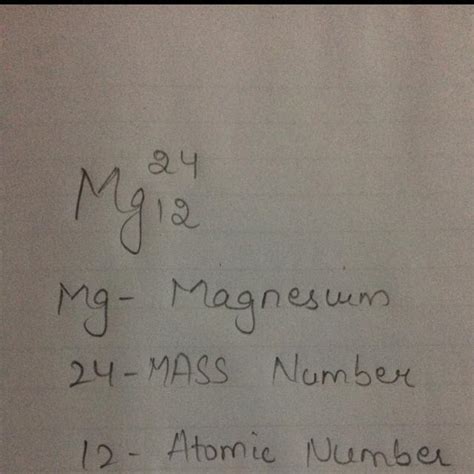 Mg²⁴₁₂
Mg - Magnesium
24 - MASS Number
12 - Atomic Number